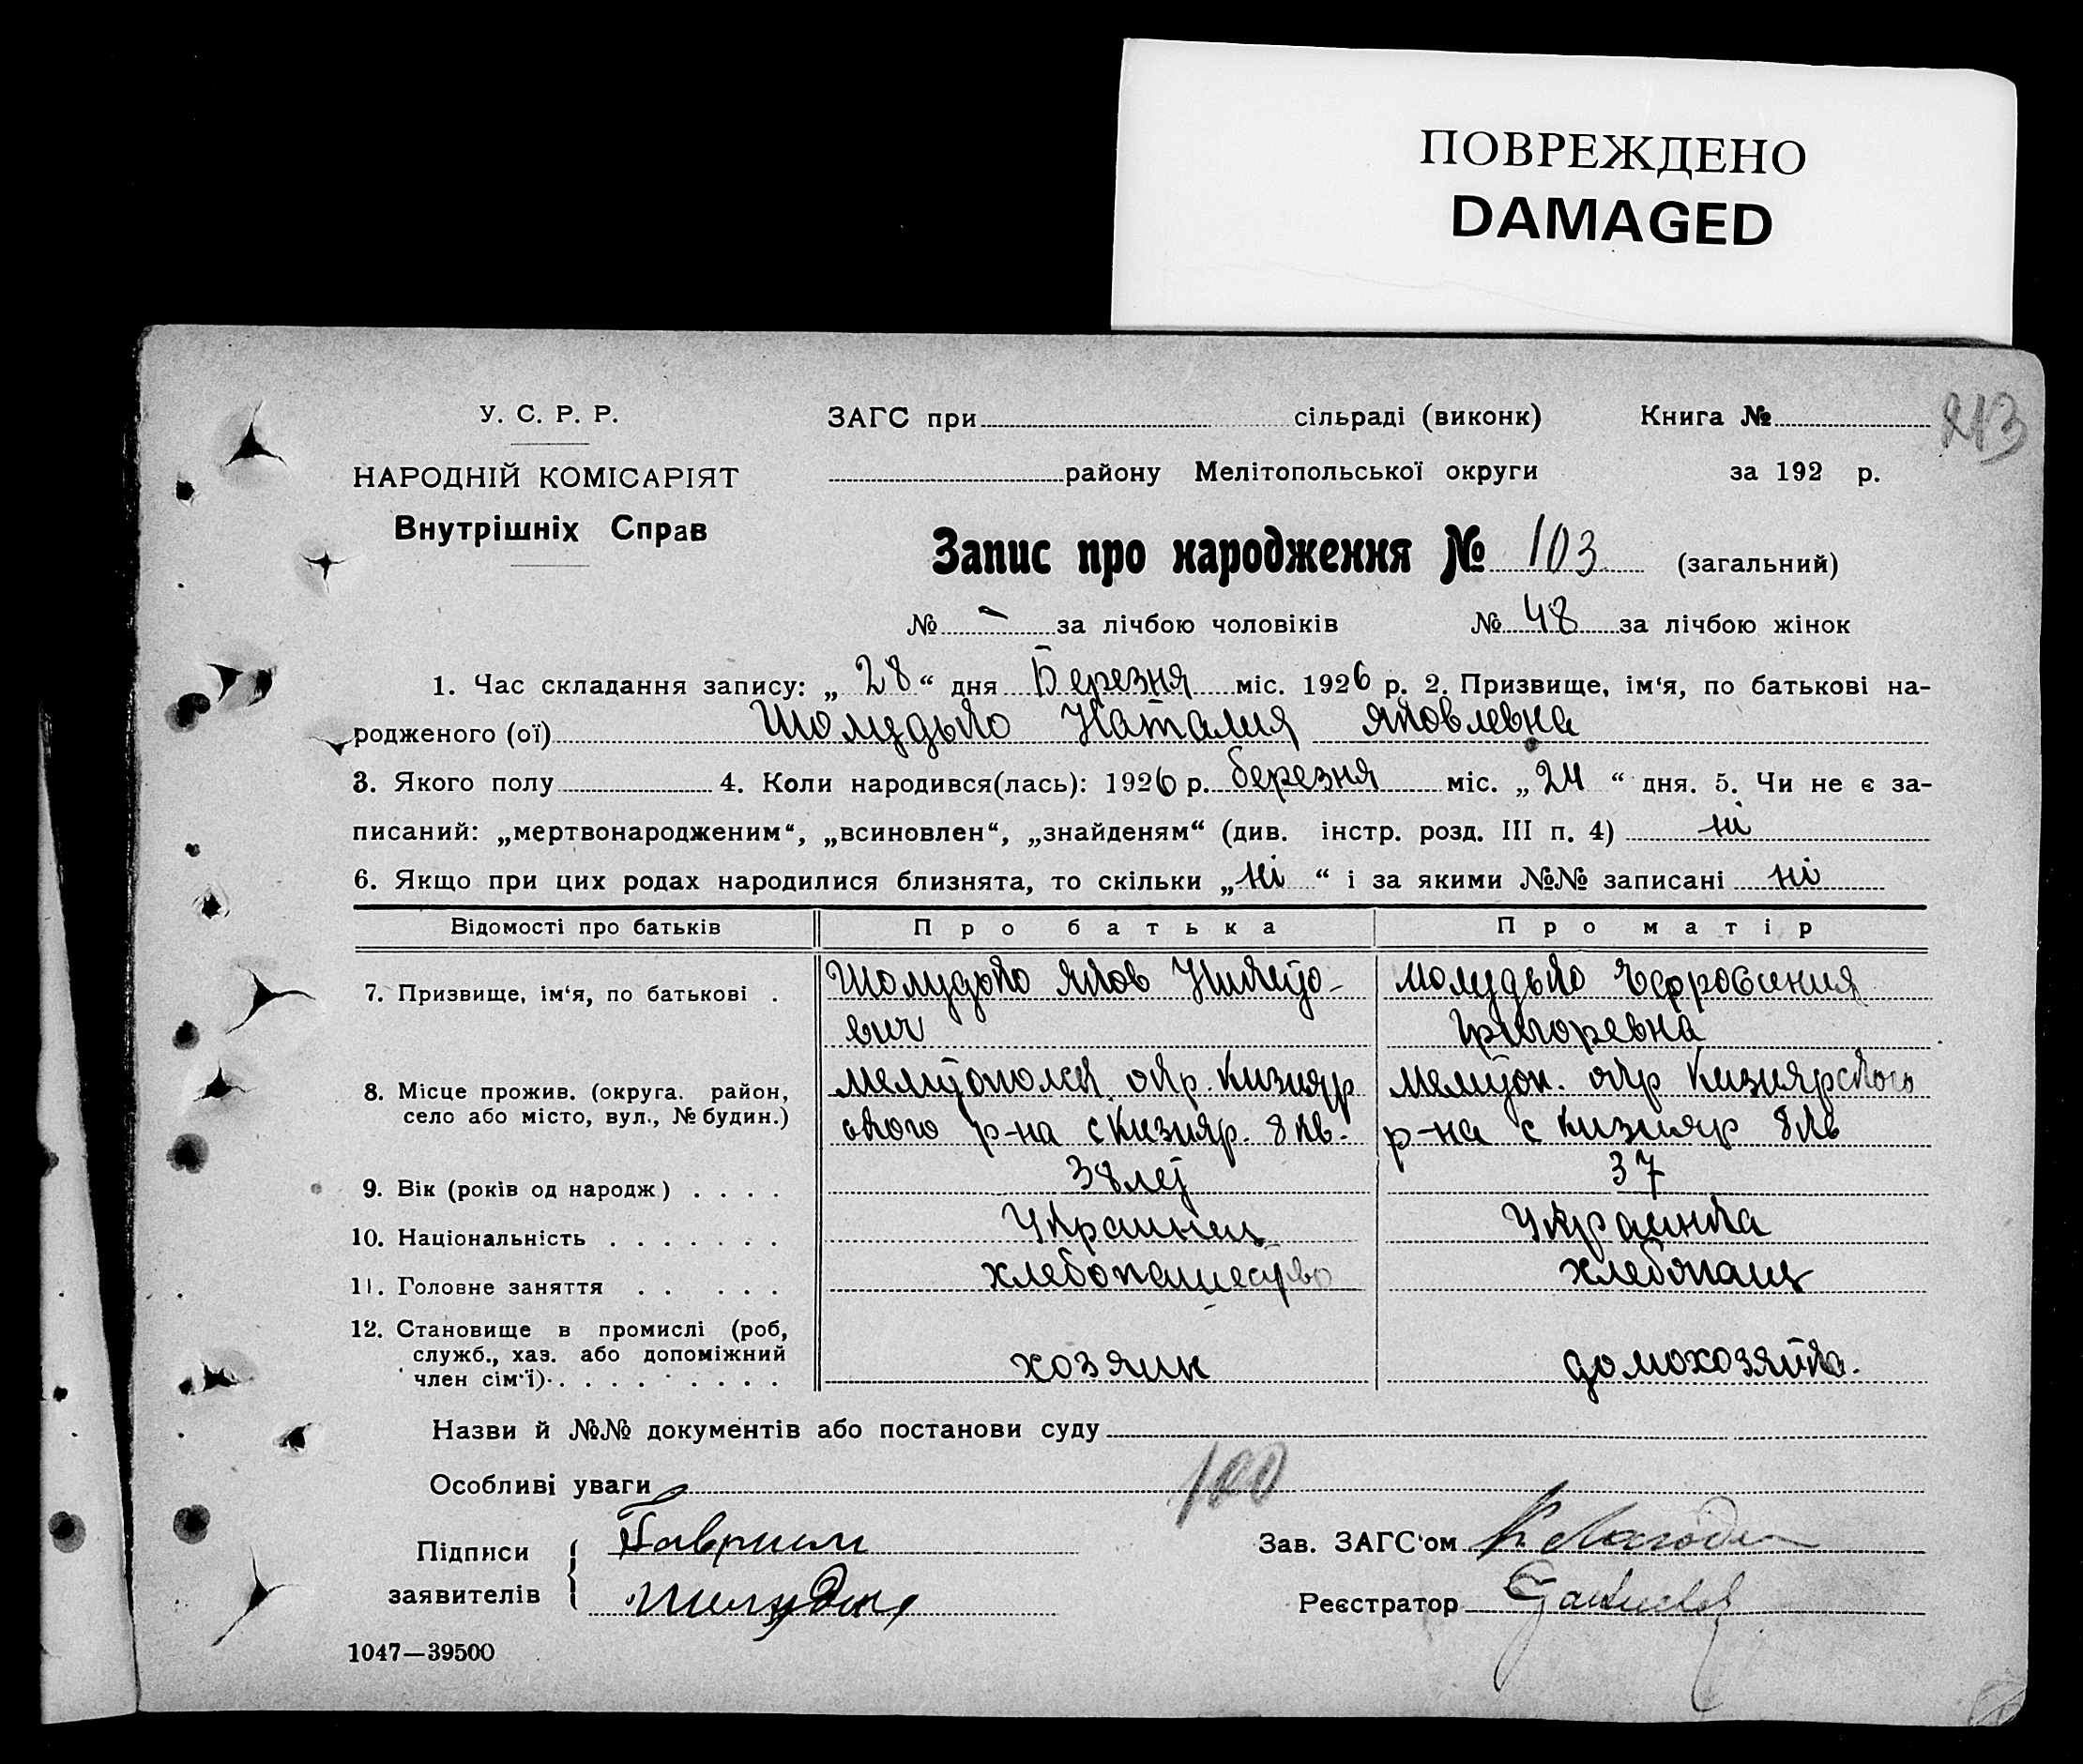 ПОВРЕЖДЕНО
DAMAGED
213
У. С. Р. Р.
НАРОДНІЙ КОМІСАРІЯТ
Внутрішніх Справ
ЗАГС при сільраді (виконк) Книга №
району Мелітопольської округи за 192 р.
Запис про народження № 103 (загальний)
№ - за лічбою чоловіків № 48 за лічбою жінок
1. Час складання запису: „ 28 “ дня Березня міс. 1926 р. 2. Призвище, ім‘я, по батькові на-
родженого (ої) Шолудько Наталия Яковлевна
3. Якого полу 4. Коли народився(лась): 1926 р. березня міс. „ 24 “ дня. 5. Чи не є за-
писаний: „мертвонародженим“, „всиновлен“, „знайденям“ (див. інстр. розд. III п. 4) ні
6. Якщо при цих родах народилися близнята, то скільки „ ні “ і за якими №№ записані ні
Відомості про батьків Про батька Про матір
7. Призвище, ім‘я, по батькові . Шолудько Яков Шолудько Ефросиния
евич Григоревна
8. Місце прожив. (округа. район, Мелитопольск окр. Кизияр Мелитоп. окр Кизиярского
село або місто, вул., № будин.) ского р-на с Кизияр. 8 кв. р-на с Кизияр 8 кв
9. Вік (років од народж) . . . . 38 лет 37
10. Національність . . . . . . . Украинец Украинка
11. Головне заняття . . . . . хлебопашество хлебопаш
12. Становище в промислі (роб,
служб., хаз. або допоміжний
член сім‘ї) . . . . . . . . . хозяин домохозяйка.
Назви й №№ документів або постанови суду
Особливі уваги 100
Підписи заявителів Гавриил
Зав. ЗАГС‘ом
Реєстратор
1047—39500